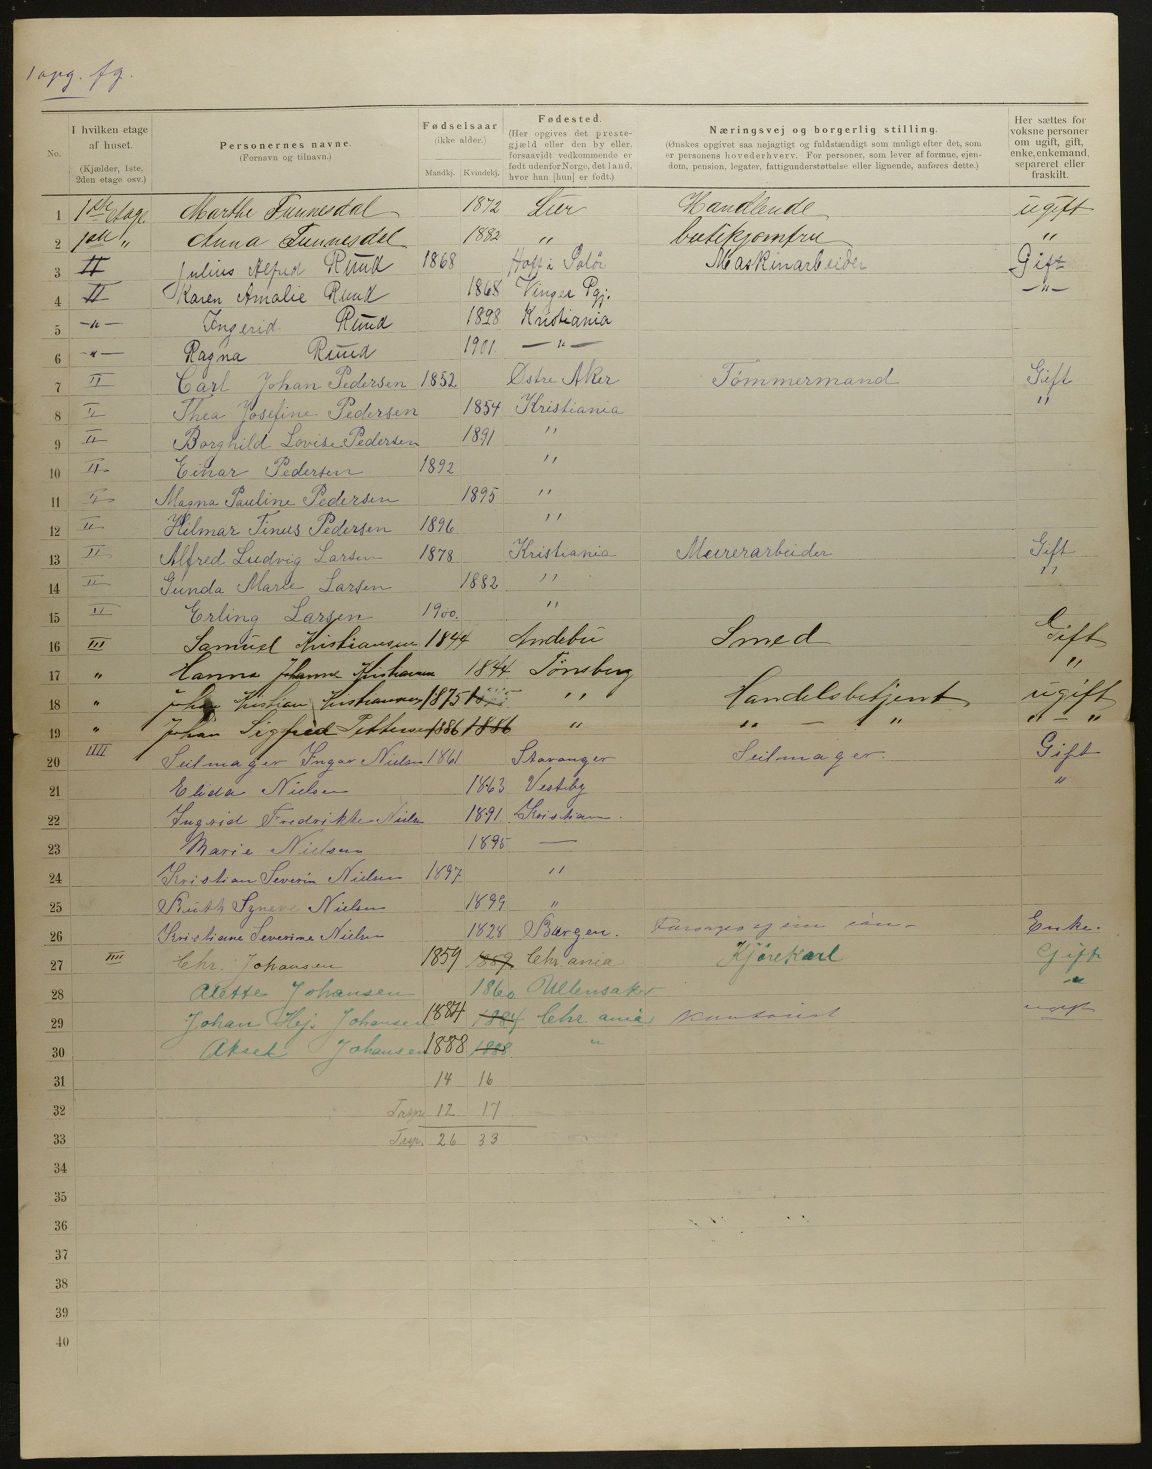 1 opg. fg.
No.
I hvilken etage af huset. (Kjælder, 1ste, 2den etage osv.)
Personernes navne. (Fornavn og tilnavn.)
Fødselsaar (ikke alder.) Mandkj. Kvindekj.
Fødested. (Her opgives det prestegjæld eller den by eller, forsaavidt vedkommende er født udenfor Norge, det land, hvor han [hun] er født.)
Næringsvej og borgerlig stilling. (Ønskes opgivet saa nøjagtigt og fuldstændigt som muligt efter det, som er personens hovederhverv. For personer, som lever af formue, ejendom, pension, legater, fattigunderstøttelse eller lignende, anføres dette.)
Her sættes for voksne personer om ugift, gift, enke, enkemand, separeret eller fraskilt.
1 1ste Etage Marthe Tunnesdal 1872 Lier Handlende ugift
2 1ste " Anna Tunnesdal 1882 " butikjomfru "
3 II Julius Alfred Ruud 1868 Hoff i Solør Maskinarbeider Gift
4 II Karen Amalie Ruud 1868 Vinger Pgj. — " —
5 — " — Ingerid Ruud 1898 Kristiania
6 — " — Ragna Ruud 1901 — " —
7 II Carl Johan Pedersen 1852 Østre Aker Tömmermand Gift
8 II Thea Josefine Pedersen 1854 Kristiania "
9 II Borghild Lovise Pedersen 1891 "
10 II Einar Pedersen 1892 "
11 II Magna Pauline Pedersen 1895 "
12 II Hilmar Tinus Pedersen 1896 "
13 II Alfred Ludvig Larsen 1878 Kristiania Murerarbeider Gift
14 II Gunda Marie Larsen 1882 " "
15 II Erling Larsen 1900. "
16 III Samuel Kristiansen 1844 Andebu Smed Gift
17 " Hanna Johanne Kristiansen 1844 Tönsberg "
18 " Johan Kristian Kristiansen 1875 " Handelsbetjent ugift
19 " Johan Sigfred Pettersen 1886 1886 " " — " " — "
20 IIII Seilmager Ingar Nielsen 1861 Stavanger Seilmager. Gift
21 Elida Nielsen 1863 Vestby "
22 Ingrid Fredrikke Nielsen 1891 Kristiania.
23 Marie Nielsen 1895 —
24 Kristian Severin Nielsen 1897 "
25 Ruth Synøve Nielsen 1899 "
26 Kristiane Severine Nielsen 1828 Bergen. Forsørges af sin sön Enke.
27 IIII Chr. Johansen 1859 1859 Chr ania Kjörekarl Gift
28 Alette Johansen 1860 Ullensaker "
29 Johan Johansen 1884 1884 Chr ania Kontorist ugift
30 Aksel Johansen 1888 1888 "
31 14 16
32 12 17
33 26 33
34
35
36
37
38
39
40